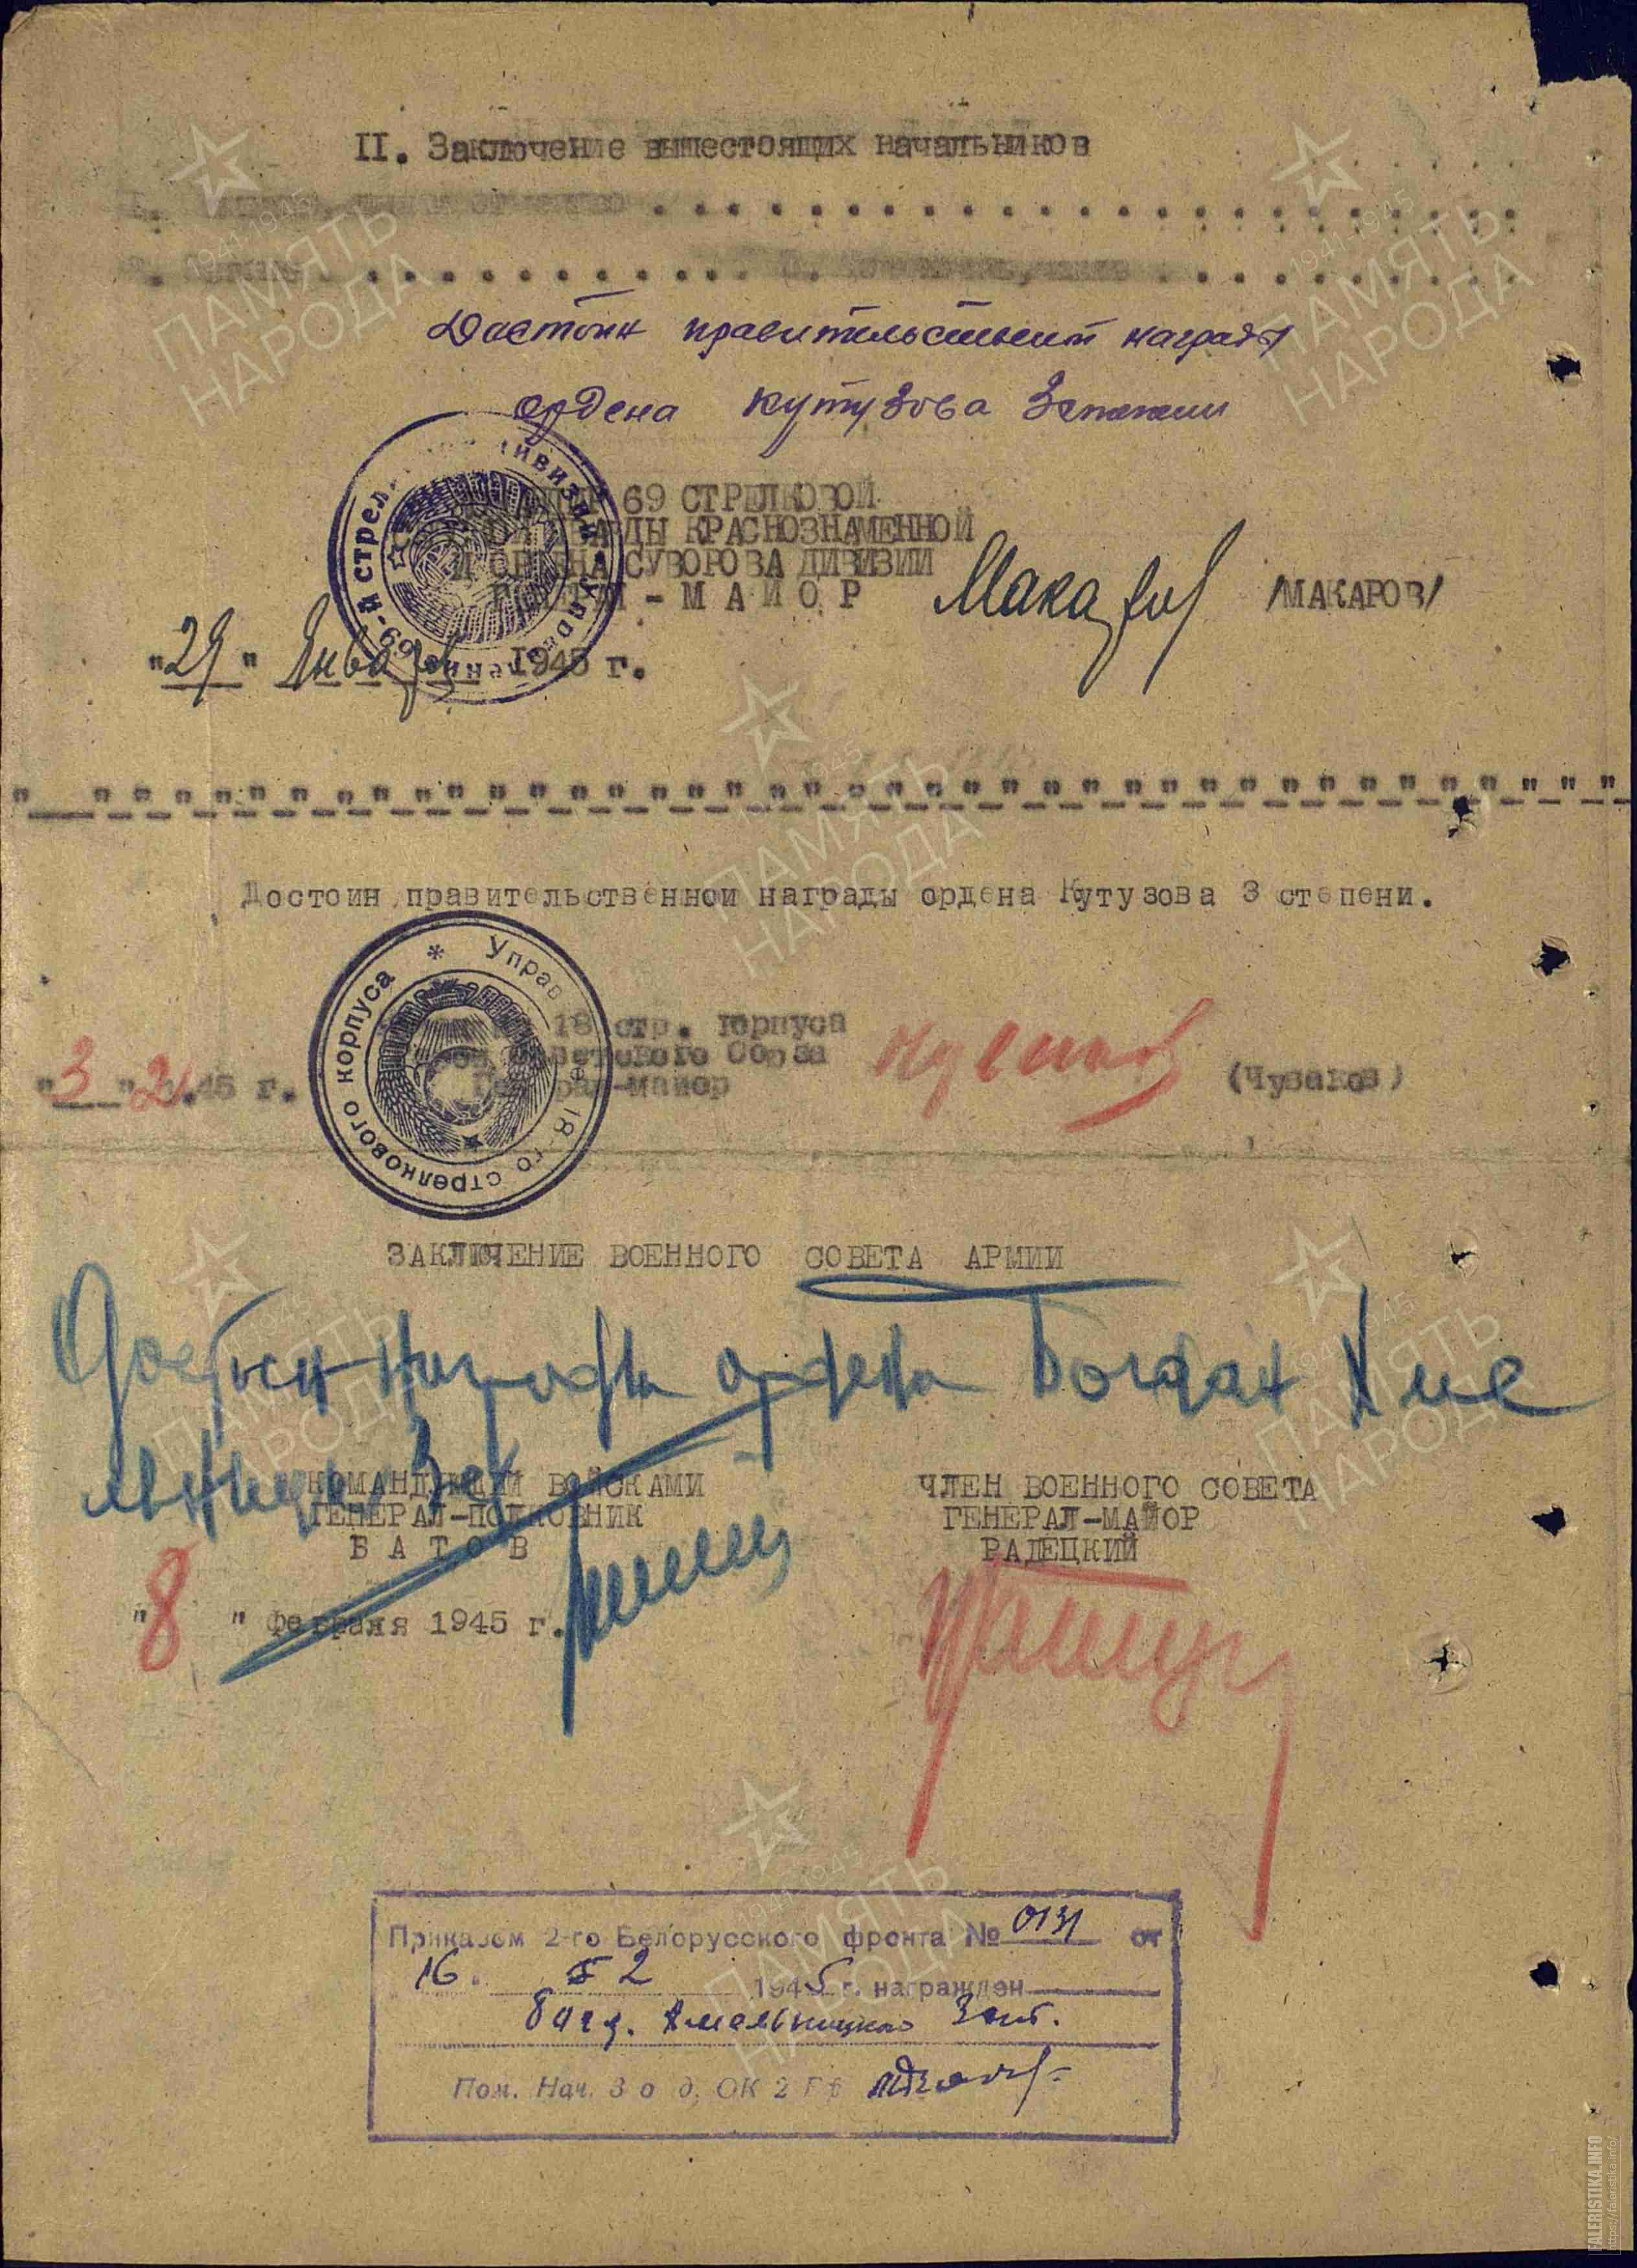 II. Заключение вышестоящих начальников
Достоин правительствен награды
ордена Кутузова 3 степени
69 СТРЕЛКОВОЙ
КРАСНОЗНАМЕННОЙ
И ОРДЕНА СУВОРОВА ДИВИЗИИ
- М А Й О Р Макаров /МАКАРОВ/
"29" Января 1945 г.
Достоин правительственной награды ордена Кутузова 3 степени.
18 стр. корпуса
Советского Союза
"3" 2.45 г. Генерал-майор (Чуваков)
Управление 18-го стрелкового корпуса
ЗАКЛЮЧЕНИЕ ВОЕННОГО СОВЕТА АРМИИ
Достоин награды ордена Богдан Хме
льницк 3 ст
КОМАНДУЮЩИЙ ВОЙСКАМИ ЧЛЕН ВОЕННОГО СОВЕТА
ГЕНЕРАЛ-ПОЛКОВНИК ГЕНЕРАЛ-МАЙОР
Б А Т О В РАДЕЦКИЙ
"8" февраля 1945 г.
Приказом 2-го Белорусского фронта № 0131 от
16. 2 1945 г. награжден
Богд. Хмельницкого 3 ст.
Пом. Нач. 3 о д. ОК 2 БФ
1941-1945
ПАМЯТЬ
НАРОДА
FALERISTIKA.INFO
https://faleristika.info/